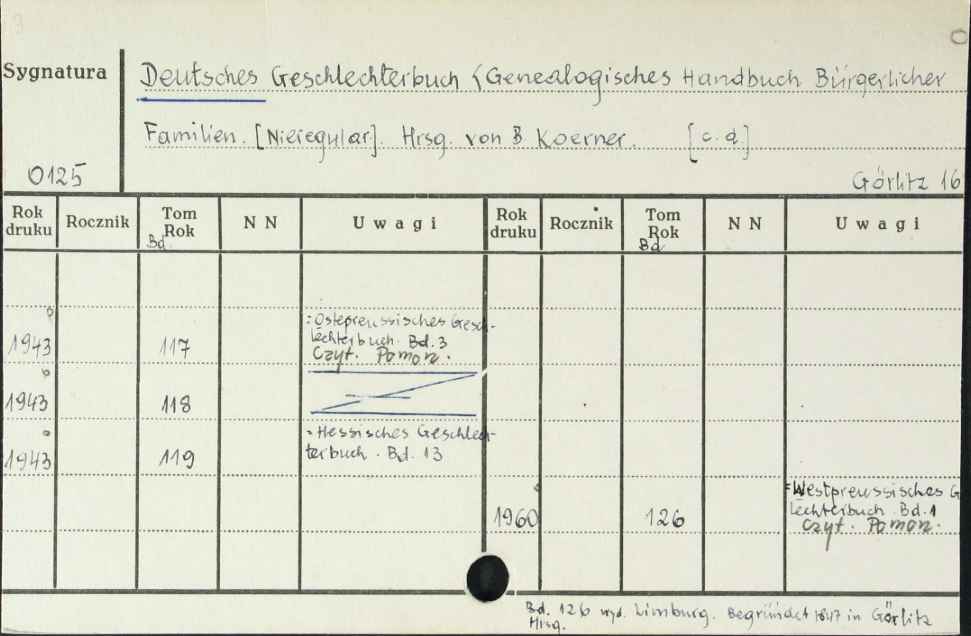 Sygnatura
Deutsches Geschlechterbuch (Genealogisches Handbuch Bürgerlicher
Familien. [Nieregular]. Hrsg. von B Koerner. [c.d]
0125
Görlitz 16
Rok druku Rocznik Tom Rok Bd. N N Uwagi Rok druku Rocznik Tom Rok Bd N N Uwagi
:Ostepreussisches Gesch-
1943 117 lechterbuch. Bd. 3
Czyt. Pomorz.
1943 118
Hessisches Geschlech-
1943 119 terbuch. Bd. 13
=Westpreussisches G
1960 126 lechterbuch. Bd. 1
Czyt. Pomorz.
Bd. 126 wyd. Limburg. Begründet in Görlitz
Hrsg.